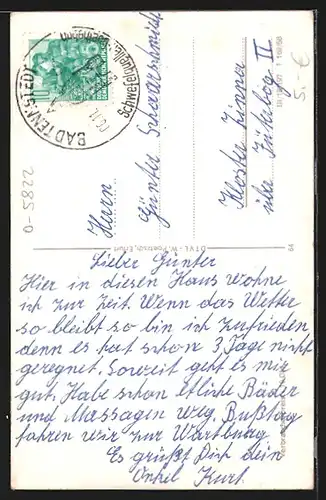 Lieber Günter
Hier in diesen Haus wohne
ich zur Zeit. Wenn das Wetter
so bleibt so bin ich zufrieden
denn es hat schon 3 Tage nicht
geregnet. Soweit geht es mir
gut. Habe schon etliche Bäder
und Massagen weg. Bußtag
fahren wir zur Wartburg.
Es grüßt Dich dein
Onkel Kurt
Herrn
Günter
Kloster Zinna
über Jüterbog II
BAD TENNSTEDT
Schwefelquellen
10
2285-0
5,-€
DTVL - W. Fortkamp, Erfurt
64